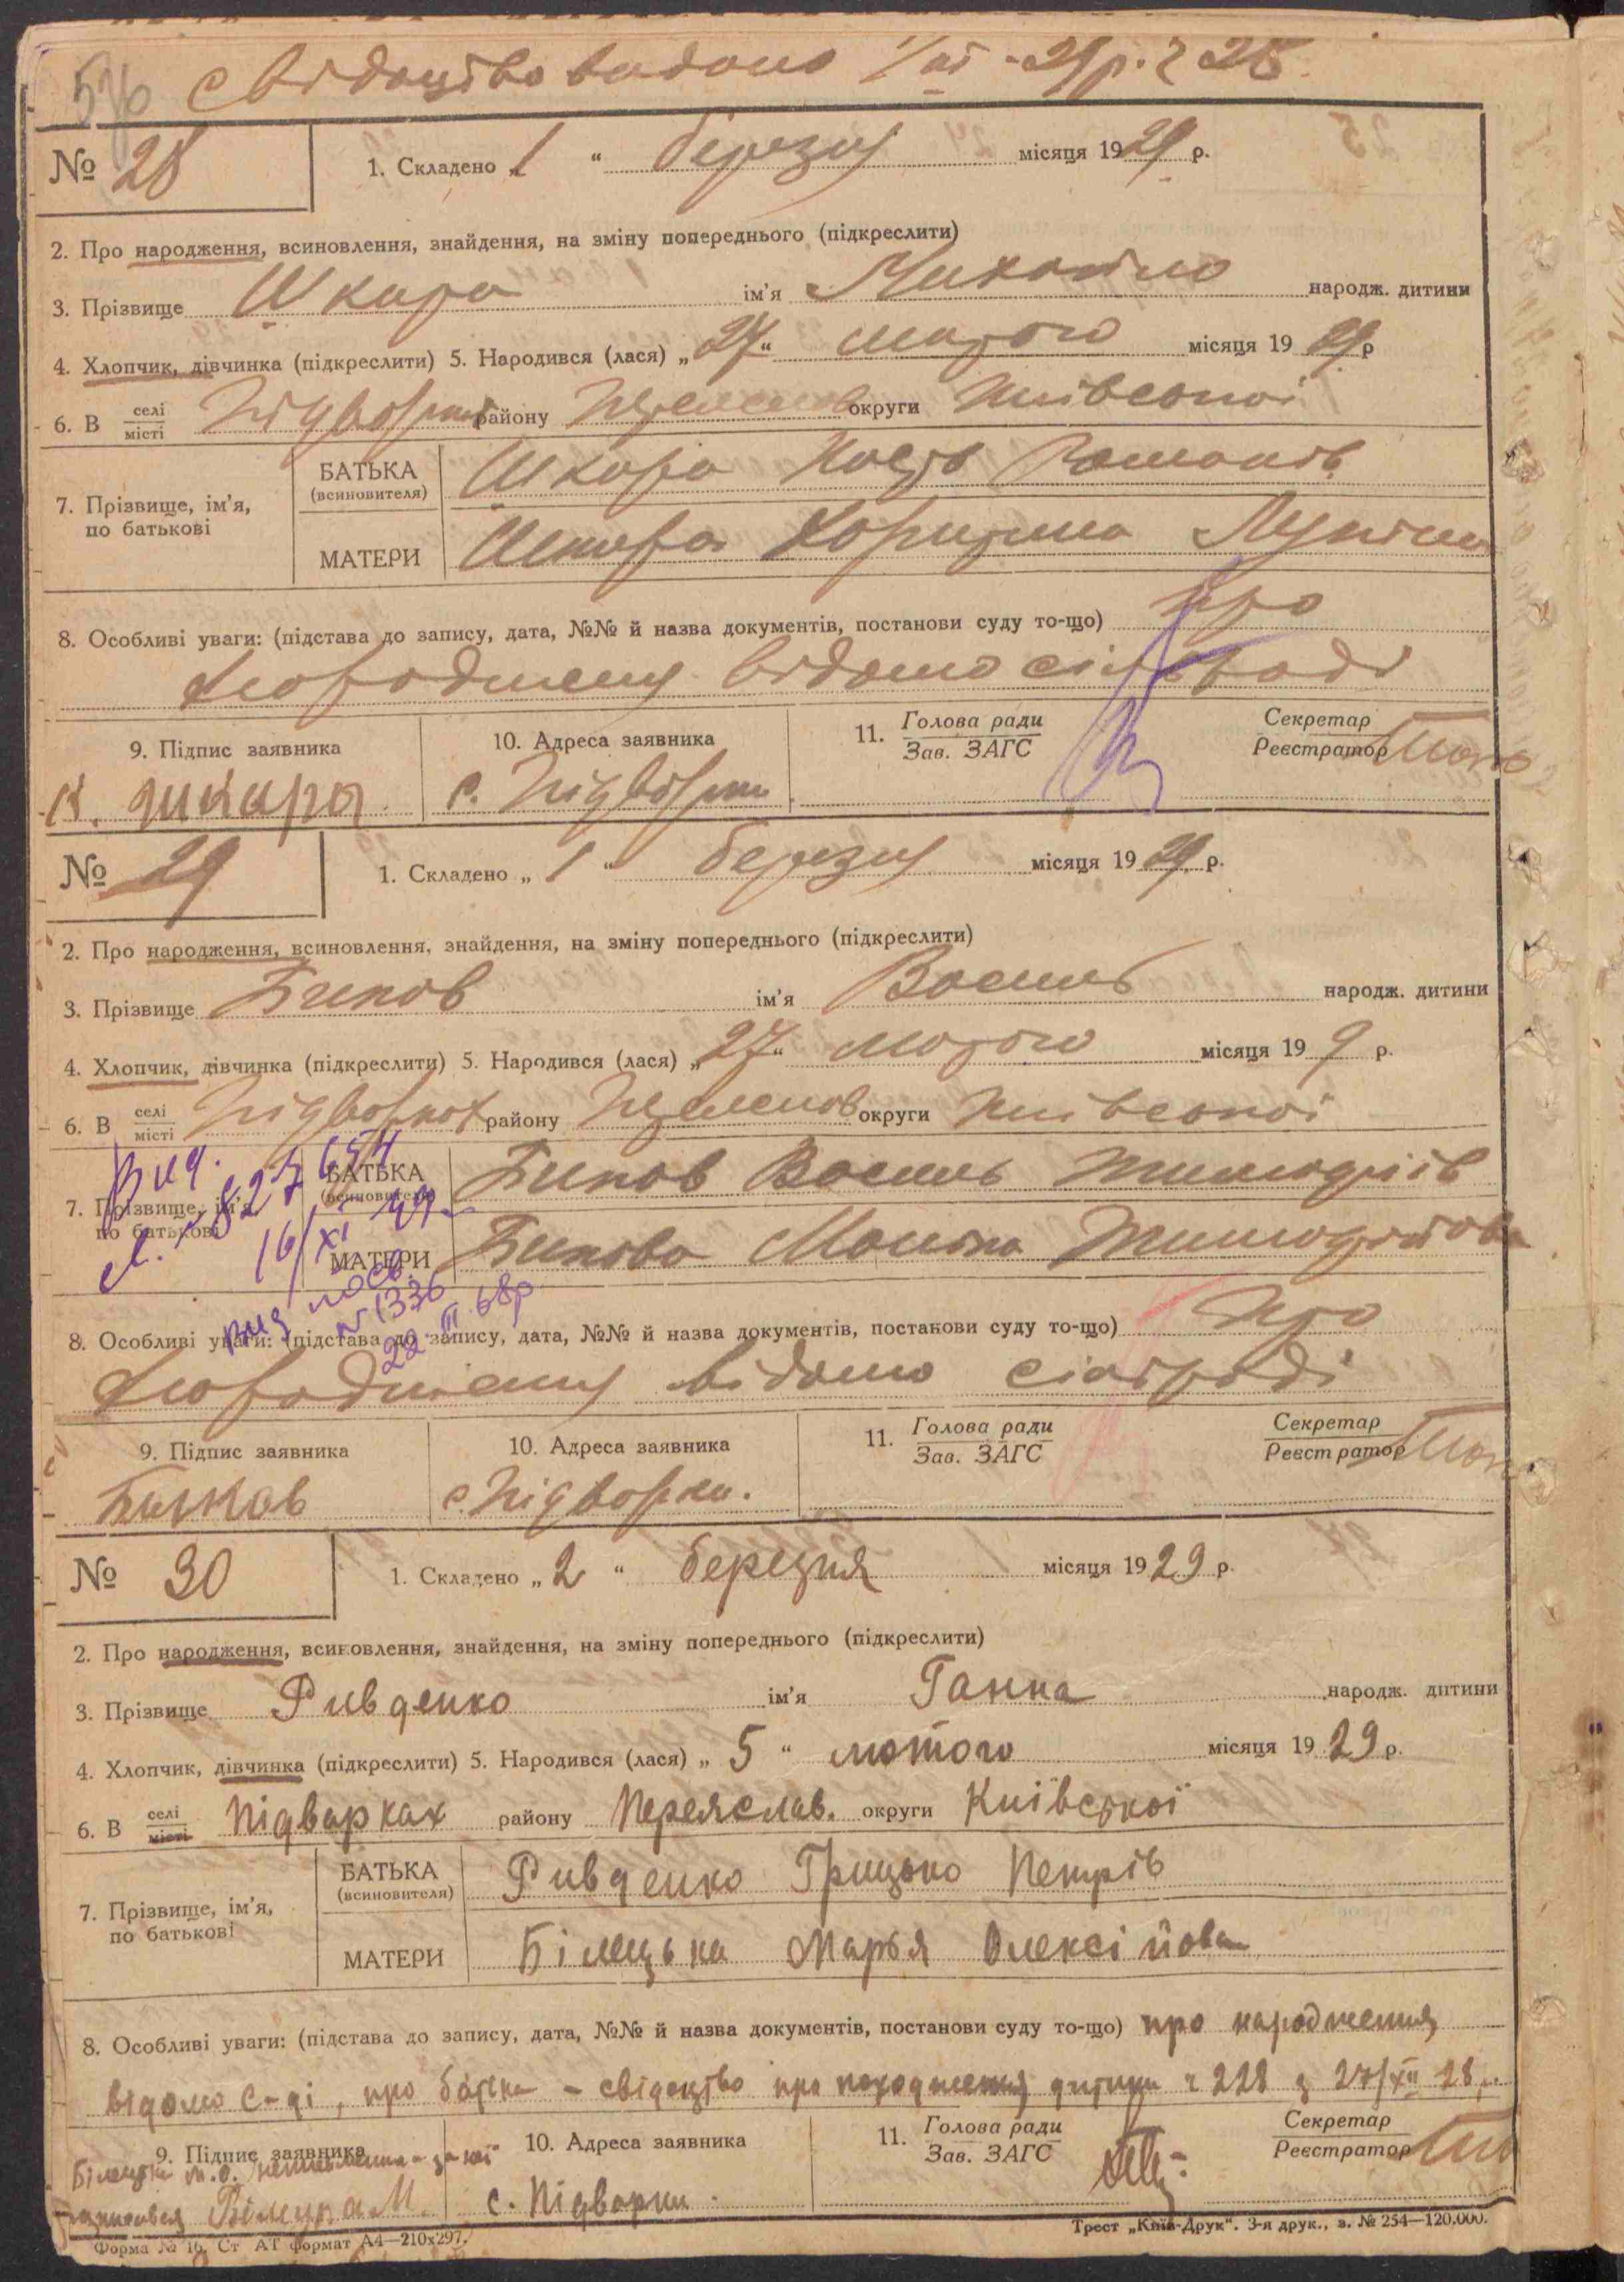 576 свідоцтво видано 1/III - 29 р. ч 28.
№ 28
1. Складено „ 1 “ березня місяця 1929 р.
2. Про народження, всиновлення, знайдення, на зміну попереднього (підкреслити)
3. Прізвище Шкара ім'я Михайло народж. дитини
4. Хлопчик, дівчинка (підкреслити) 5. Народився (лася) „ 27 “ лютого місяця 1929 р
6. В селі місті Підворках району Переяслав округи Київської
7. Прізвище, ім'я, по батькові
БАТЬКА (всиновителя) Шкара Кость Романів
МАТЕРИ Шкара Хоритина
8. Особливі уваги: (підстава до запису, дата, №№ й назва документів, постанови суду то-що) про
народження відомо сільраді
9. Підпис заявника
10. Адреса заявника
11. Голова ради Зав. ЗАГС
Секретар Реєстратор
К. Шкара
с. Підворки
№ 29
1. Складено „ 1 “ березня місяця 1929 р.
2. Про народження, всиновлення, знайдення, на зміну попереднього (підкреслити)
3. Прізвище Биков ім'я Василь народж. дитини
4. Хлопчик, дівчинка (підкреслити) 5. Народився (лася) „ 27 “ лютого місяця 19 9 р.
6. В селі місті Підворках району Переяслав округи Київської
7. Прізвище, ім'я, по батькові
БАТЬКА (всиновителя) Биков Василь Тимофіїв
МАТЕРИ Бикова
8. Особливі уваги: (підстава до запису, дата, №№ й назва документів, постанови суду то-що) про
народження відомо сільраді
9. Підпис заявника
10. Адреса заявника
11. Голова ради Зав. ЗАГС
Секретар Реєстратор
Биков
с. Підворки.
16/XI
N 1336
22. III 68р
№ 30
1. Складено „ 2 “ березня місяця 1929 р.
2. Про народження, всиновлення, знайдення, на зміну попереднього (підкреслити)
3. Прізвище Ривденко ім'я Ганна народж. дитини
4. Хлопчик, дівчинка (підкреслити) 5. Народився (лася) „ 5 “ лютого місяця 1929 р.
6. В селі місті Підварках району Переяслав. округи Київської
7. Прізвище, ім'я, по батькові
БАТЬКА (всиновителя) Ривденко Грицько Петрів
МАТЕРИ Білецька Марья Олексійова
8. Особливі уваги: (підстава до запису, дата, №№ й назва документів, постанови суду то-що) про народження
відомо с-ді, про батька – свідоцтво про походження дитини ч 228 з 27/XII 28 р.
9. Підпис заявника
10. Адреса заявника
11. Голова ради Зав. ЗАГС
Секретар Реєстратор
Білецька т.о. неписьменна – за неї
розписався Білецька М.
с. Підварки.
Форма № 16. Ст АТ формат А4—210х297.
Трест „Київ-Друк“. 3-я друк., з. № 254—120.000.